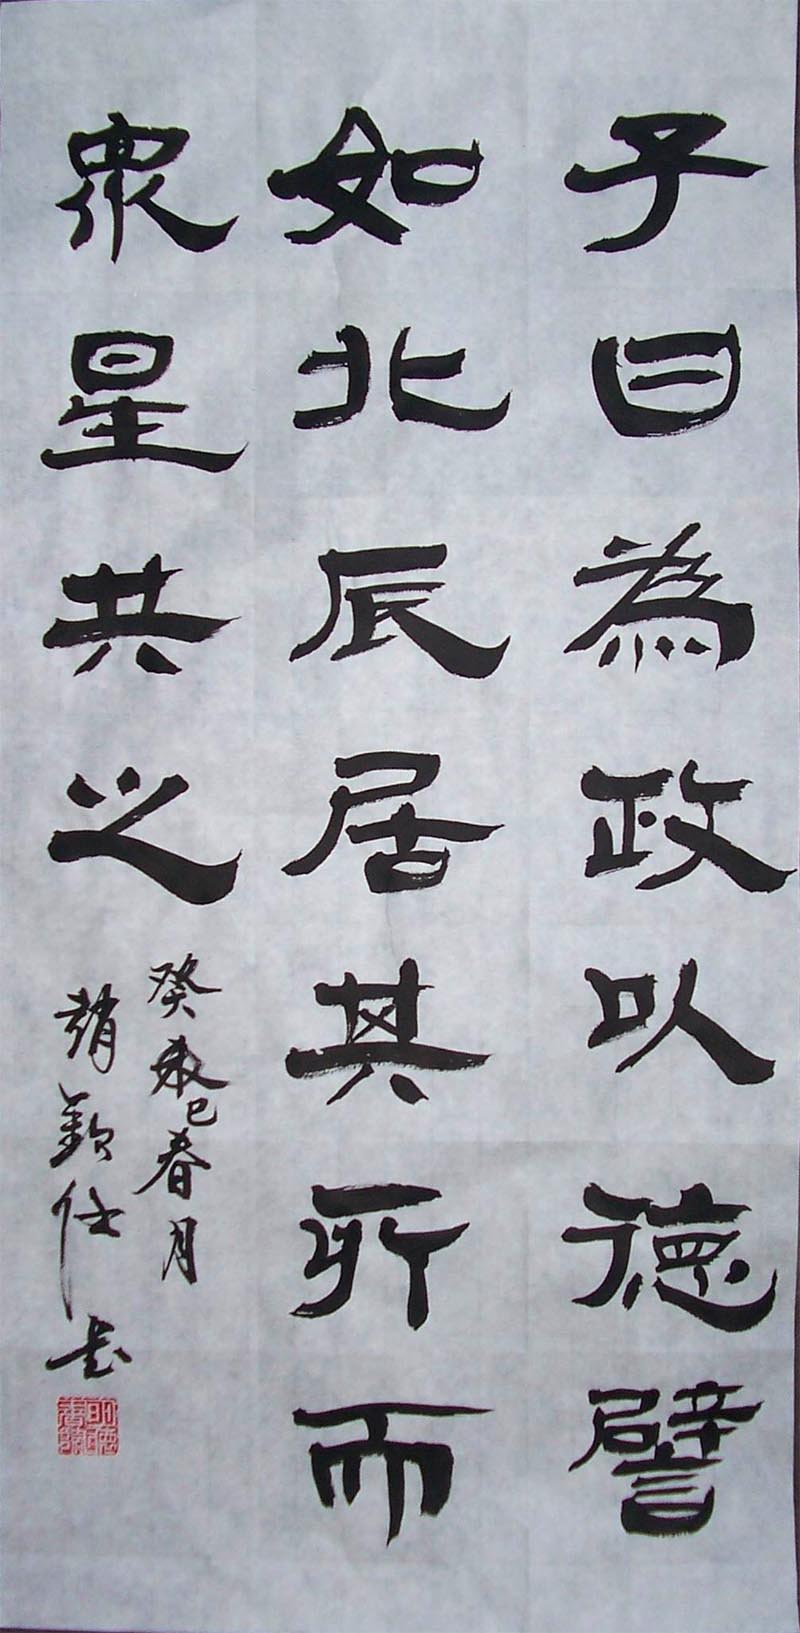 子曰為政以德譬
如北辰居其所而
眾星共之
癸未巳春月
趙欽仕書